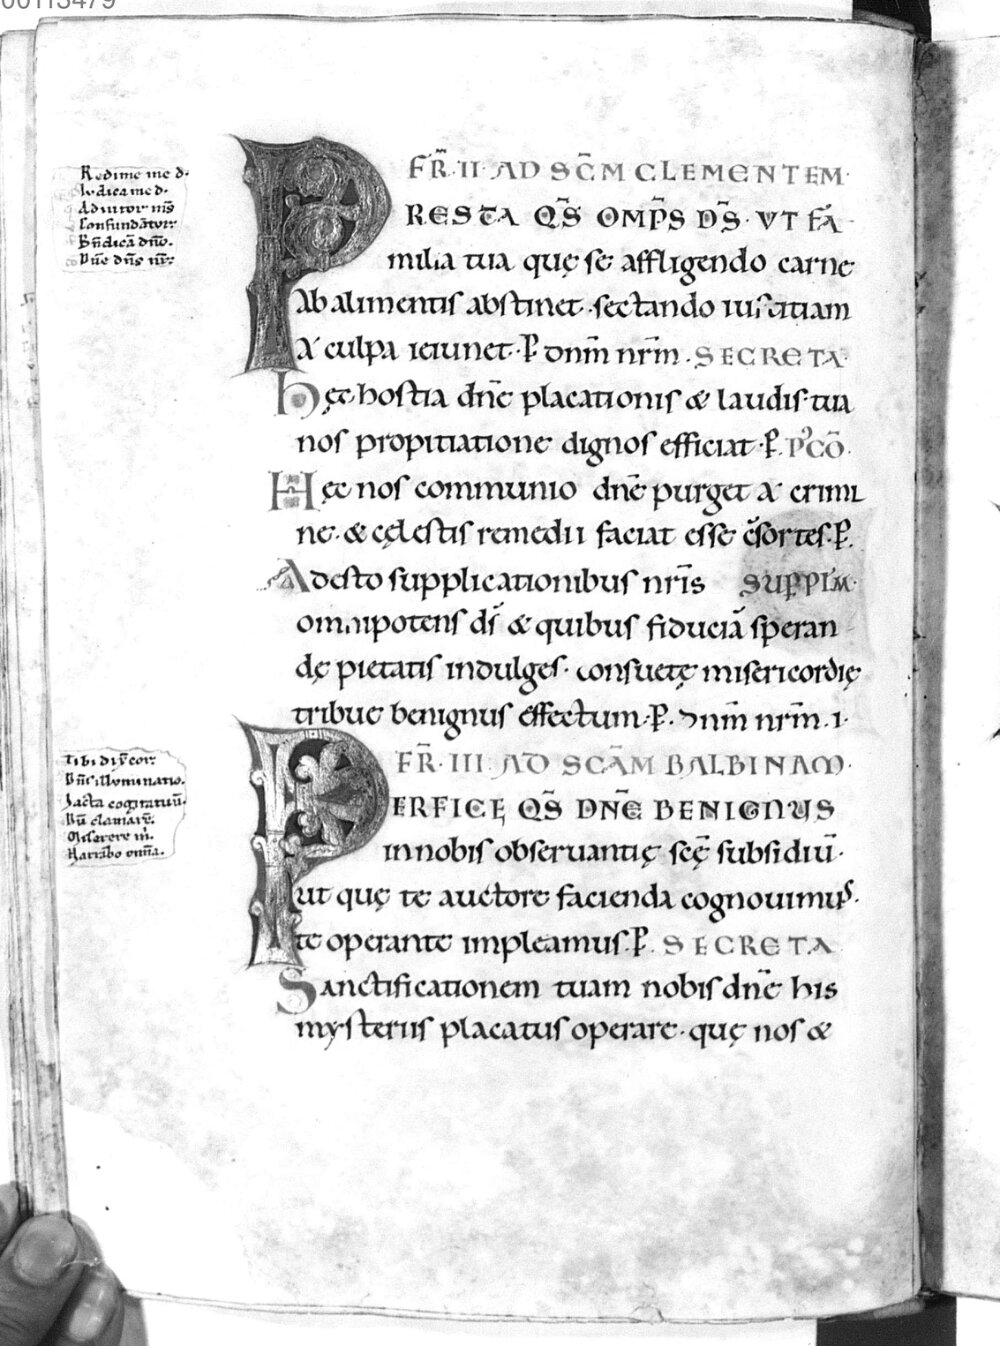 00113479
Redime me d.
Iudica me d.
Adiutor nr̄s
Confundāt̄ur
Bn̄dicā dn̄o.
Dn̄e dn̄s nr̄
FR̄. II. AD SC̄M CLEMENTEM.
PRESTA QS̄ OMP̄S DS̄. VT FA
milia tua quę se affligendo carne
Ab alimentis abstinet. sectando iusticiam
A culpa ieiunet. P̄ dnm̄ nrm̄. SECRETA.
hęc hostia dn̄e placationis & laudis. tua
nos propitiatione dignos efficiat. P̄. P̄CŌ.
Hęc nos communio dn̄e purget a crimi
ne. & cęlestis remedii faciat esse c̄sortes. P̄.
Adesto supplicationibus nrīs SUPPLM̄.
omnipotens ds̄ & quibus fiduciā speran
dę pietatis indulges. consuetę misericordię
tribue benignus effectum. P̄. dnm̄ nrm̄. i.
Tibi dix̄ cor.
Dn̄s illuminatio.
Iacta cogitatuū.
Dū clamarē.
Miserere m̄.
Narrabo omīa.
FR̄. III. AD SCĀM BALBINAM.
PERFICE QS̄ DNĒ BENIGNUS
in nobis obseruantię scę̄ subsidiū.
ut quę te auctore facienda cognouimus.
te operante impleamus. P̄. SECRETA
Sanctificationem tuam nobis dn̄e his
mysteriis placatus operare. quę nos &